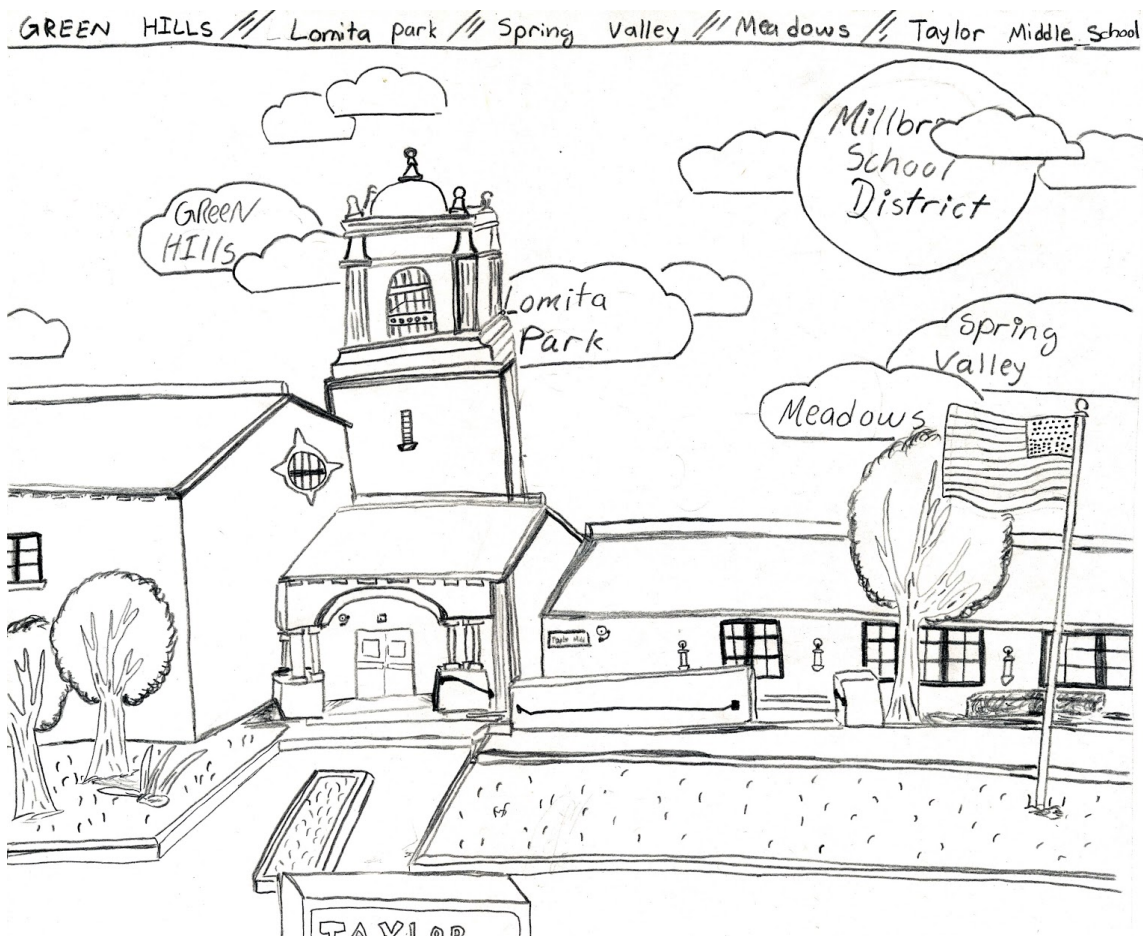 GREEN HILLS /// Lomita park /// Spring Valley /// Meadows // Taylor Middle School
Millbr
School
District
GReeN
HIlls
Lomita
Park
Spring
Valley
Meadows
TAYLOR